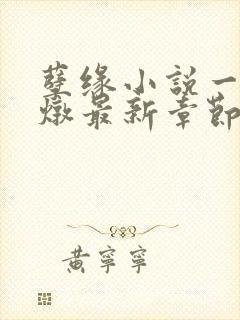 孽缘小說一
燉最新章節
黃寧寧